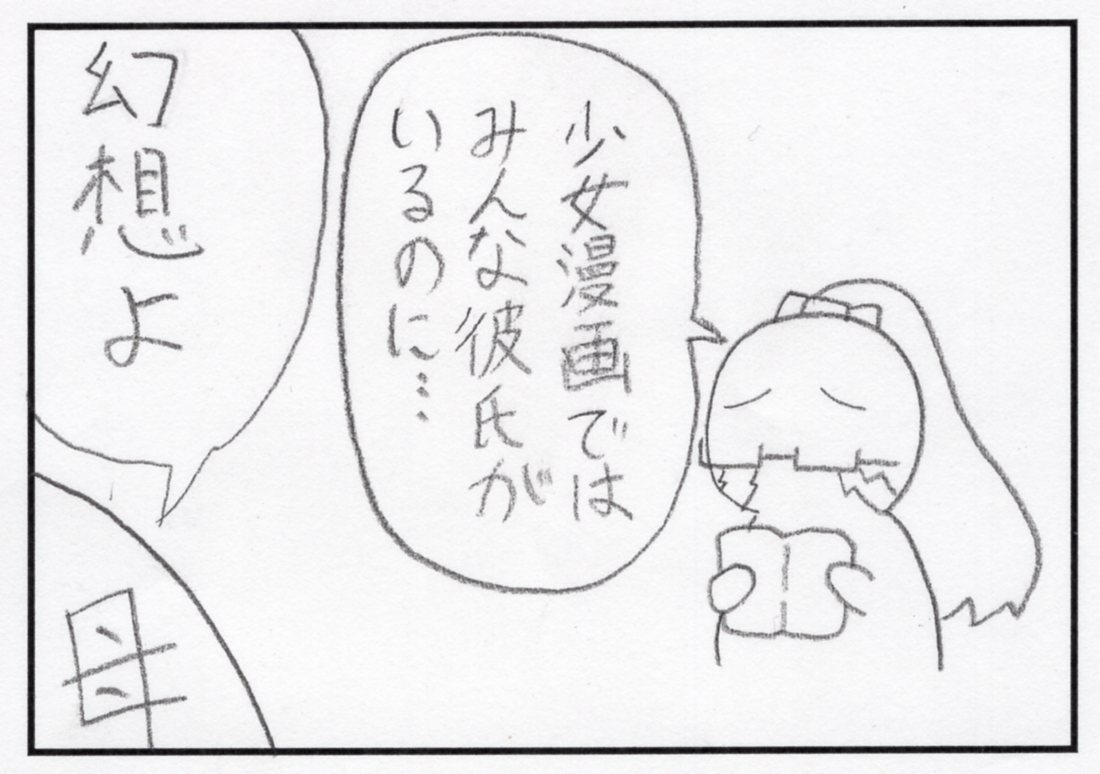 少女漫画では
みんな彼氏が
いるのに…
幻想よ
母